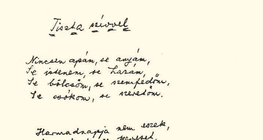 Tiszta szívvel
Nincsen apám, se anyám,
se istenem, se hazám,
se bölcsőm, se szemfedőm,
se csókom, se szeretőm.
Harmadnapja nem eszek,